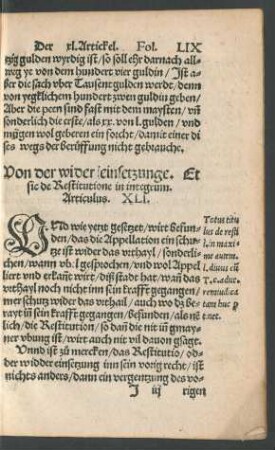 Der xl. Artickel. Fol. LIX
tzig gulden wyrdig ist/so soll ehr darnach all-
weg ye von dem hundert vier guldin/Ist a-
ber die sach vber Tausent gulden werdt/denn
von yegklichem hundert zwen guldin geben/
Aber die pen sind fast mit dem maysten/vñ
sonderlich die erste/als xx. von l. gulden/vnd
mügen wol geberen ein forcht/damit einer di
ses wegs der berüffung nicht gebrauche.
Von der wider einsetzunge. Et
sic de Restitutione in integrum.
Articulus. XLI.
VNd wie yetzt gesetzt/wirt befun
den/das die Appellation ein schu-
tze ist wider das vrthayl/sonderli-
chen/wann vñ l gesprochen/vnd wol Appel
liert vnd erkañt wirt/diß statt hat/wañ das
vrthayl noch nicht inn sein krafft gegangen/
mer schutz wider das vrthail/auch wo dz be-
rayt iñ sein krafft gegangen/befunden/als nē
lich/die Restitution/so dañ die nit iñ gmay-
ner vbung ist/wirt auch nit vil dauon gsagt.
Vnnd ist zů mercken/das Restitutio/od-
der widder einsetzung inn sein vorig recht/ist
nichts anders/dann ein vergentzung des vo-
J iij rigen
Totus titu
lus de resti
in maxi
me autem